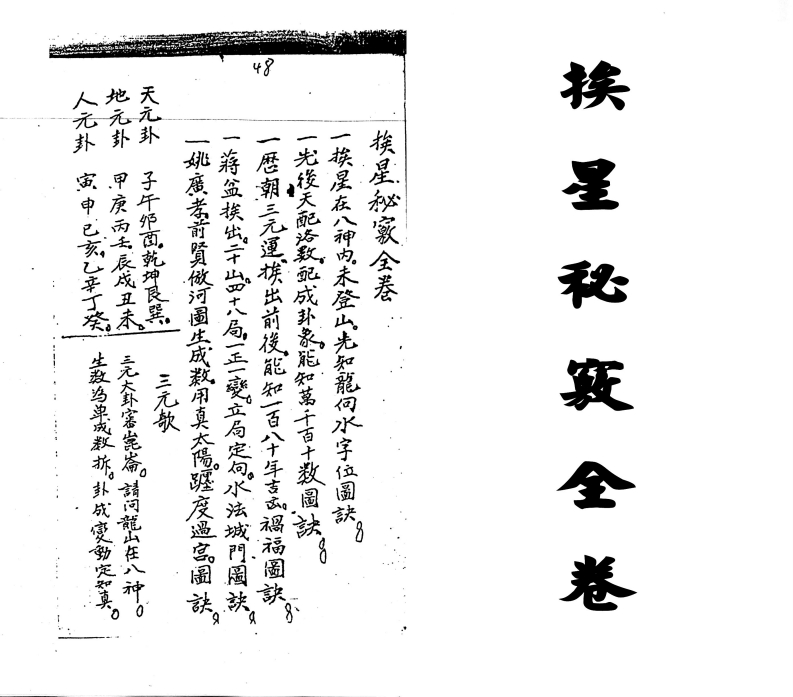 挨星秘竅全卷
48
挨星秘竅全卷
一挨星在八神內。未登山。先知龍向水字位圖訣。
一先後天配洛数。配成卦象。能知萬千百十数圖訣。
一歷朝三元運。挨出前後。能知一百八十年吉凶。禍福圖訣。
一蔣盆挨出。二十山。四十八局。一正一變。立局定向。水法城門圖訣。
一姚廣孝。前賢倣河圖生成数。用真太陽。躔度過宮。圖訣。
天元卦 子午卯酉。乾坤艮巽。
地元卦 甲庚丙壬。辰戌丑未。
人元卦 寅申巳亥。乙辛丁癸。
三元歌
三元大卦審崑崙。請问龍山在八神。
生数為単成数拆。卦成變動定知真。